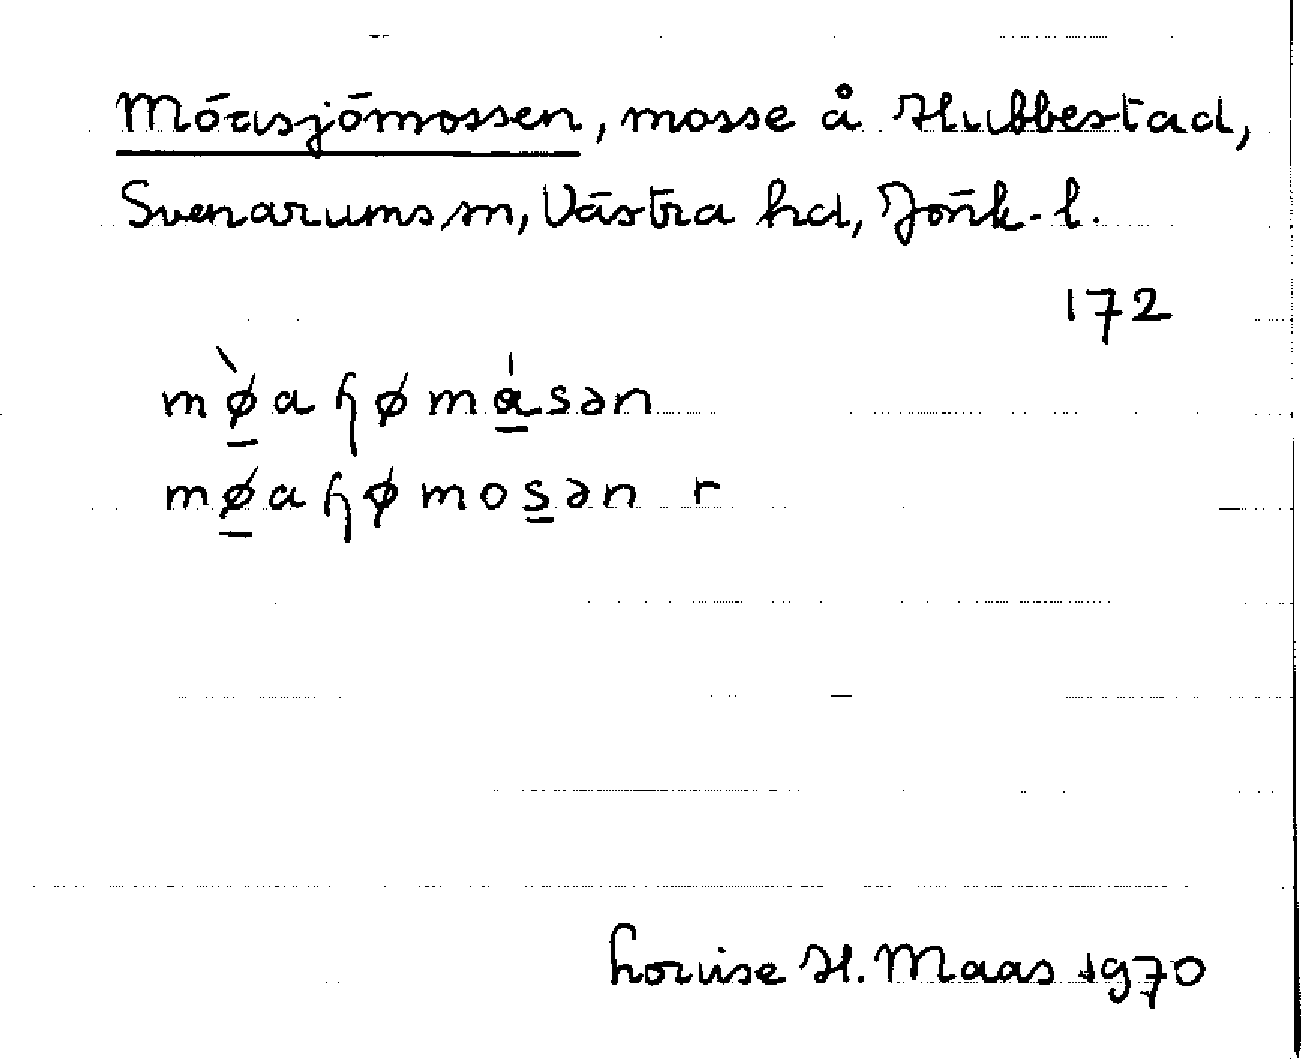 Möasjömossen, mosse å Hubbestad,
Svenarums sn, Västra hd, Jönk. l.
172
mø̠̀aɧømá̠sən
mø̠aɧømos̠ən r
Louise H. Maas 1970